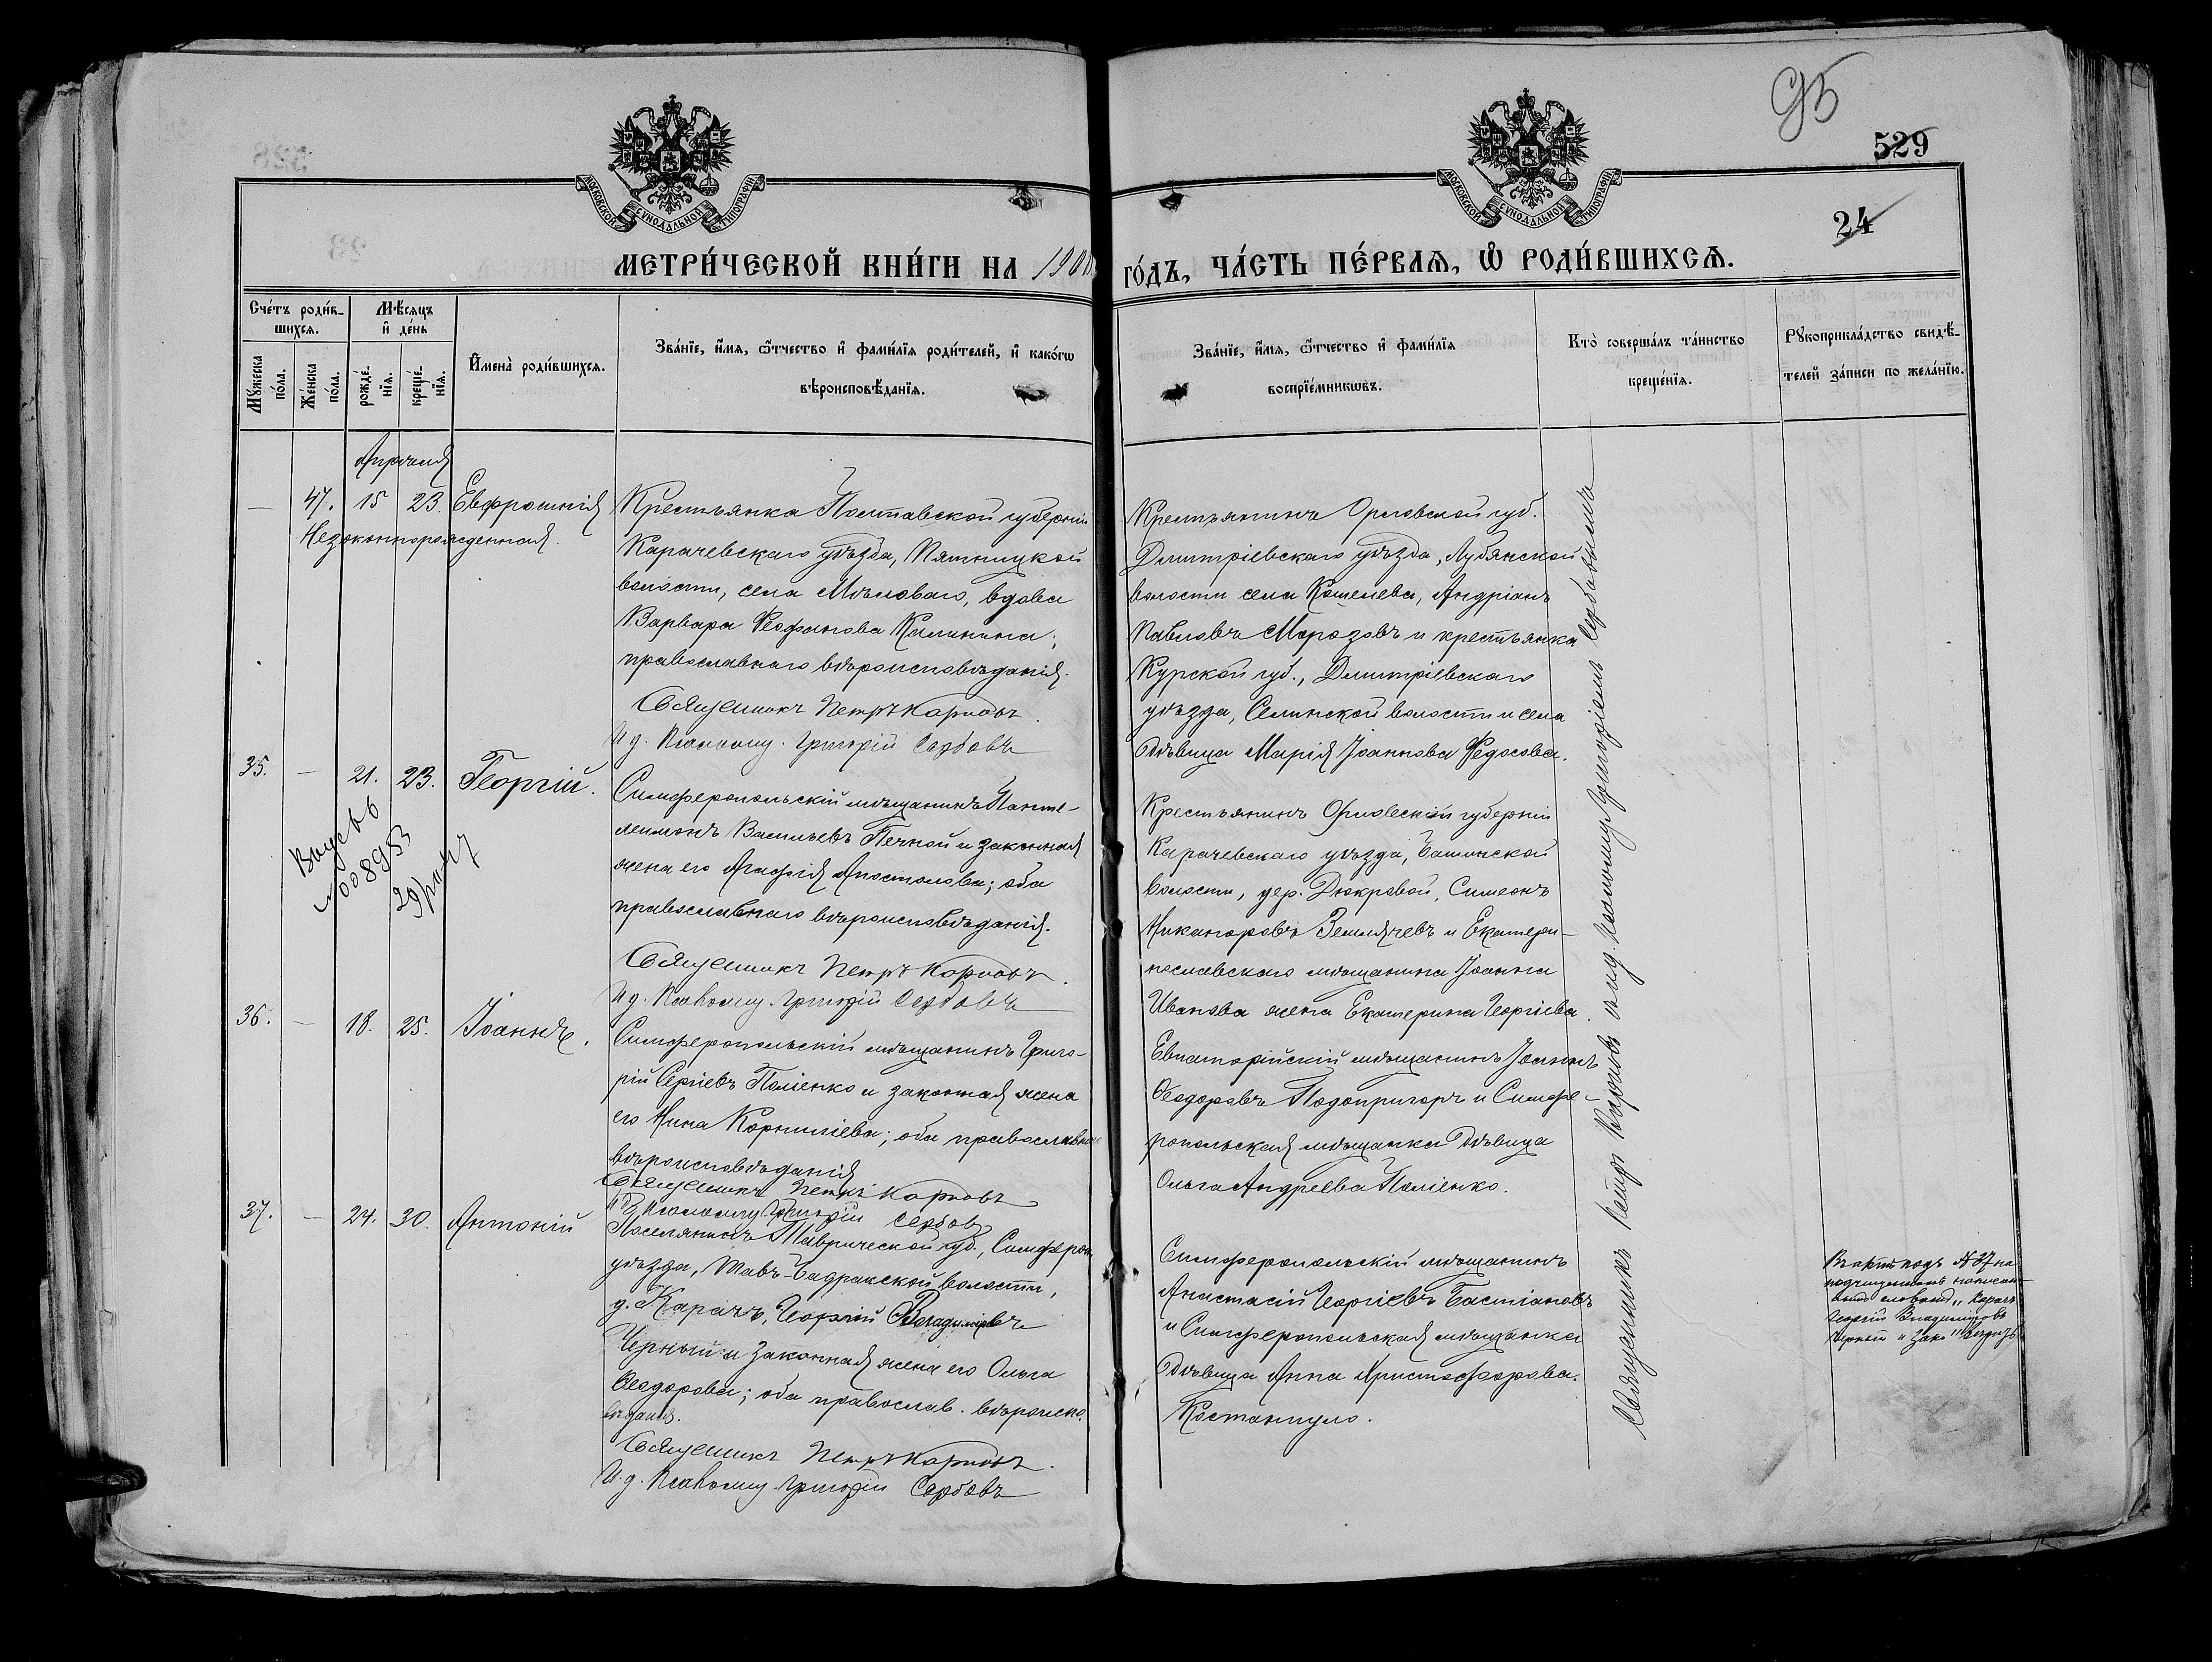 95
529
24
МОСКОВСКОЙ СУНОДАЛЬНОЙ ТИПОГРАФІИ
МОСКОВСКОЙ СУНОДАЛЬНОЙ ТИПОГРАФІИ
МЕТРИ́ЧЕСКОЙ КНИ́ГИ НА 190
ГО́ДЪ, ЧА́СТЬ ПЕ́РВАЯ, Ѽ РОДИ́ВШИХСЯ.
Сче́тъ роди́в-
шихся.
Мѣ́сяцъ
и҆ де́нь
Мꙋ́жеска
по́ла.
Же́нска
по́ла.
рожде́-
нїя.
креще́-
нїя.
И҆мена̀ роди́вшихся.
Зва́нїе, и҆́мя, ѻ҆́тчество и҆ фами́лїя роди́телей, и҆ како́гѡ
вѣроисповѣ́данїя.
Зва́нїе, и҆́мя, ѻ҆́тчество и҆ фами́лїя
воспрїе́мникѡвъ.
Кто̀ соверша́лъ та́инство
креще́нїя.
Рꙋкоприкла́дство свидѣ́-
телей за́писи по жела́нїю.
Апрѣля
— 47. 15 23. Евфросинія
Незаконнорожденная.
Крестьянка Полтавской губерніи
Карачевскаго уѣзда, Пятницкой
волости, села Мѣловаго, вдова
Варвара Ѳеофанова Калинина;
православнаго вѣроисповѣданія.
Священникъ Петръ Карповъ.
И. д. Псаломщ. Григорій Сербовъ
Крестьянинъ Орловской губ.
Дмитріевскаго уѣзда, Лубянской
волости села Кошелева, Андріанъ
Павловъ Морозовъ и крестьянка
Курской губ., Дмитріевскаго
уѣзда, Селинской волости и села
дѣвица Марія Іоаннова Ѳедосова.
35. — 21. 23. Георгій.
008983
Симферопольскій мѣщанинъ Панте-
леимонъ Васильевъ Печной и законная
жена его Агафія Апостолова; оба
православнаго вѣроисповѣданія.
Священникъ Петръ Карповъ.
И. д. Псаломщ. Григорій Сербовъ
Крестьянинъ Орловской губерніи
Карачевскаго уѣзда,
волости, дер. Симеонъ
Никаноровъ Землячевъ и Екатери-
нославскаго мѣщанина Іоанна
Иванова жена Екатерина Георгіева.
36. — 18. 25. Іоаннъ.
Симферопольскій мѣщанинъ Григо-
рій Сергіевъ Поліенко и законная жена
его Нина Корниліева; оба православнаго
вѣроисповѣданія
Священникъ Петръ Карповъ
И. д. Псаломщ. Григорій Сербовъ
Евпаторійскій мѣщанинъ Іоаннъ
Ѳеодоровъ Подопригоръ и Симфе-
ропольская мѣщанка дѣвица
Ольга Андреева Поліенко.
37. — 24. 30. Антоній
Поселянинъ Таврической губ., Симфероп.
уѣзда, волости,
д. Карачъ, Георгій Владиміровъ
Черный и законная жена его Ольга
Ѳеодорова; оба православ. вѣроиспо-
вѣданія.
Священникъ Петръ Карповъ.
И. д. Псаломщ. Григорій Сербовъ
Симферопольскій мѣщанинъ
Анастасій Георгіевъ Бастіановъ
и Симферопольская мѣщанка
дѣвица Анна Христофорова
Костантуло.
Священникъ Петръ Карповъ съ и. д. псаломщ. Григоріемъ Сербовымъ
подъ № 37 на
"Карачъ
Георгій Владиміровъ
Черный и зак"